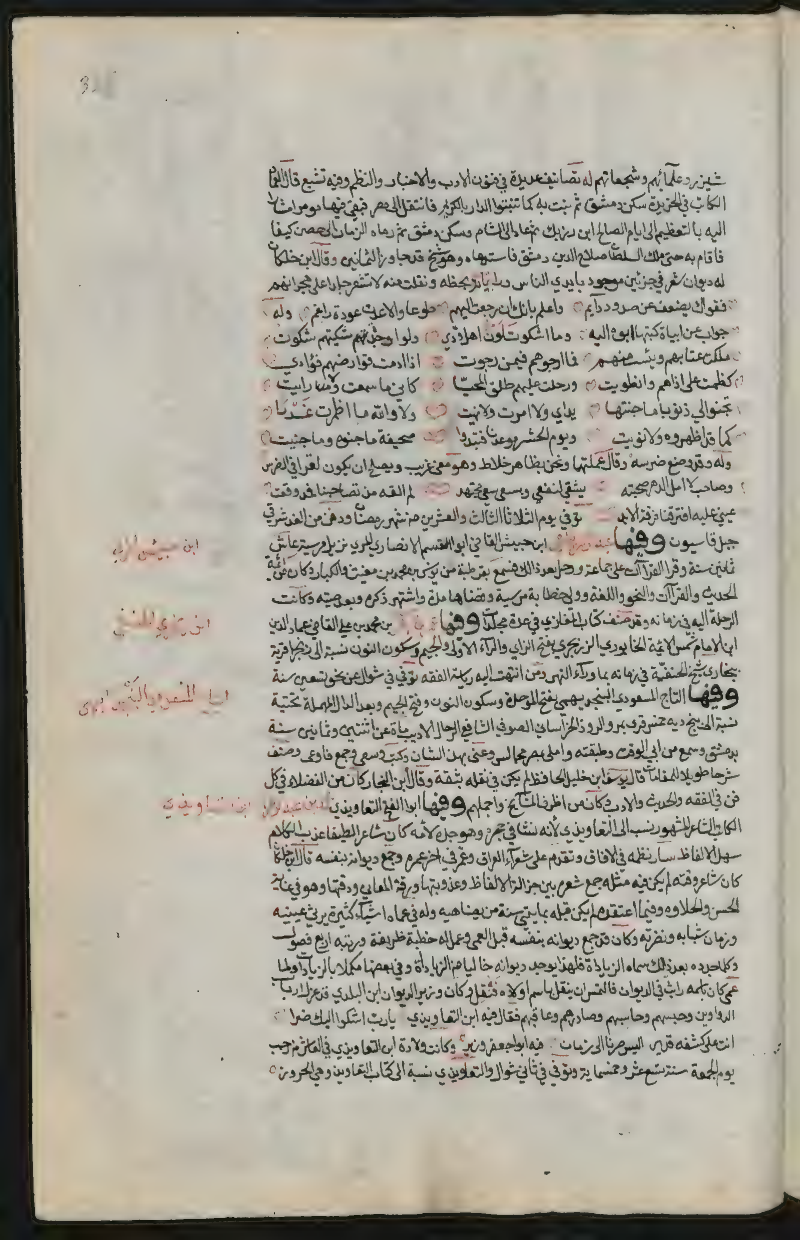 شيزر وعلمائهم وشجعانهم له تصانيف عديدة في فنون الادب والاخبار والنظم وفيه تشيع قال العماد
الكاتب في الخريدة سكن دمشق ثم نبت به كما تنبو الدار بالكريم فانتقل الى مصر فبقي فيها مؤمرا مشارا
اليه بالتعظيم الى ايام الصالح ابن رزيك ثم عاد الى الشام وسكن دمشق ثم رماه الزمان الى حصن كيفا
فاقام به حتى ملك السلطان صلاح الدين دمشق فاستدعاه وهو شيخ قد جاوز الثمانين وقال ابن خلكان
له ديوان شعر في جزئين موجود بايدي الناس ورايته بخطه ونقلت منه لا تستعر جلدا على هجرانهم
فقواك تضعف عن صدود دايم واعلم بانك ان رجعت اليهم طوعا والا عدت عودة راغم وله
جواب عن ابيات كتبها ابوه اليه وما اشكو تلون اهل ودي ولو اجدت شكيتهم شكوت
مللت عتابهم ويئست منهم فما ارجوهم فيمن رجوت اذا ادمت قوارصهم فؤادي
كظمت على اذاهم وانطويت ورحت عليهم طلق المحيا كاني ما سمعت ولا رايت
تجنوا لي ذنوبا ما جنتها يداي ولا امرت ولا نهيت ولا والله ما اضمرت غدرا
كما قد اظهروه ولا نويت ويوم الحشر موعدنا فتبدوا صحيفة ما جنوه وما جنيت
وله وقد وقع ضرسه وقال عملتها ونحن بظاهر خلاط وهو معنى غريب ويصلح ان يكون لغزا في الضرس
وصاحب لا امل الدهر صحبته يشقى لنفعي ويسعى سعي مجتهد لم القه مذ تصاحبنا فمذ وقعت
عيني عليه افترقنا فرقة الابد توفي في يوم الثلاثا الثالث والعشرين من شهر رمضان ودفن من الغد شرقي
جبل قاسيون وفيها ابن حبيش القاضي ابو القسم الانصاري المريي نزيل مرسية عاش
ثمانين سنة وقرا القراآت على جماعة ورحل بعد ذلك فسمع بقرطبة من يونس بن محمد بن مغيث والكبار وكان من ائمة
الحديث والقراآت والنحو واللغة وولي خطابة مرسية وقضاها مدة واشتهر ذكره وبعد صيته وكانت
الرحلة اليه في زمانه وقد صنف كتاب المغازي في عدة مجلدات وفيها بن محمد بن علي القاضي عماد الدين
ابن الامام شمس الائمة الخابوري الزرنجري بفتح الزاي والراء الاولى والجيم وسكون النون نسبة الى زرنجر قرية
ببخارى شيخ الحنفية في زمانه بما وراء النهر ومن انتهت اليه رياسة الفقه توفي في شوال عن نحو تسعين سنة
وفيها التاج المسعودي
نسبة الى بنج ديه خمس قرى بمرو الروذ الخراساني الصوفي الشافعي الرحال الاديب مات عن اثنتين وثمانين سنة
بدمشق وسمع من ابي الوقت وطبقته واملى بمصر مجالس وعني بهذا الشان وكتب وسعى وجمع فاوعى وصنف
شرحا طويلا للمقامات قال يوسف ابن خليل الحافظ لم يكن في نقله بثقة وقال ابن النجار كان من الفضلاء في كل
فن في الفقه والحديث والادب وكان من اظرف المشايخ واجملهم وفيها ابو الفتح التعاويذي
الكاتب الشاعر المشهور ينسب الى التعاويذي لأنه نشا في حجره وهو جد لامه كان شاعرا لطيفا عذب الكلام
سهل الالفاظ سار نظمه في الافاق وتقدم على شعراء العراق وعمي في اخر عمره وجمع ديوانه بنفسه قال ابن خلكان
كان شاعر وقته لم يكن فيه مثله جمع شعره بين جزالة الالفاظ وعذوبتها ورقة المعاني ودقتها وهو في غاية
الحسن والحلاوة وفيما اعتقده لم يكن قبله بمايتي سنة من يضاهيه وله في عماه اشياء كثيرة يرثي عينيه
وزمان شبابه ونضرته وكان قد جمع ديوانه بنفسه قبل العمى وعمل له خطبة ظريفة ورتبه اربع فصول
وكلما جدده بعد ذلك سماه الزيادة فلهذا يوجد ديوانه خاليا من الزيادات وفي بعضها مكملا بالزيادات ولما
عمي كان باسمه راتب في الديوان فالتمس ان ينقل باسم اولاده فنقل وكان وزير الديوان ابن البلدي قد عزل ارباب
الدواوين وحبسهم وحاسبهم وصادرهم وعاقبهم فقال فيه ابن التعاويذي يارب اشكو اليك ضرا
انت على كشفه قدير اليس صرنا الى زمان فيه ابو جعفر وزير وكانت ولادة ابن التعاويذي في العاشر من رجب
يوم الجمعة سنة تسع عشر وخمسماية وتوفي في ثاني شوال والتعاويذي نسبة الى كتاب التعاويذ وهي الحروز